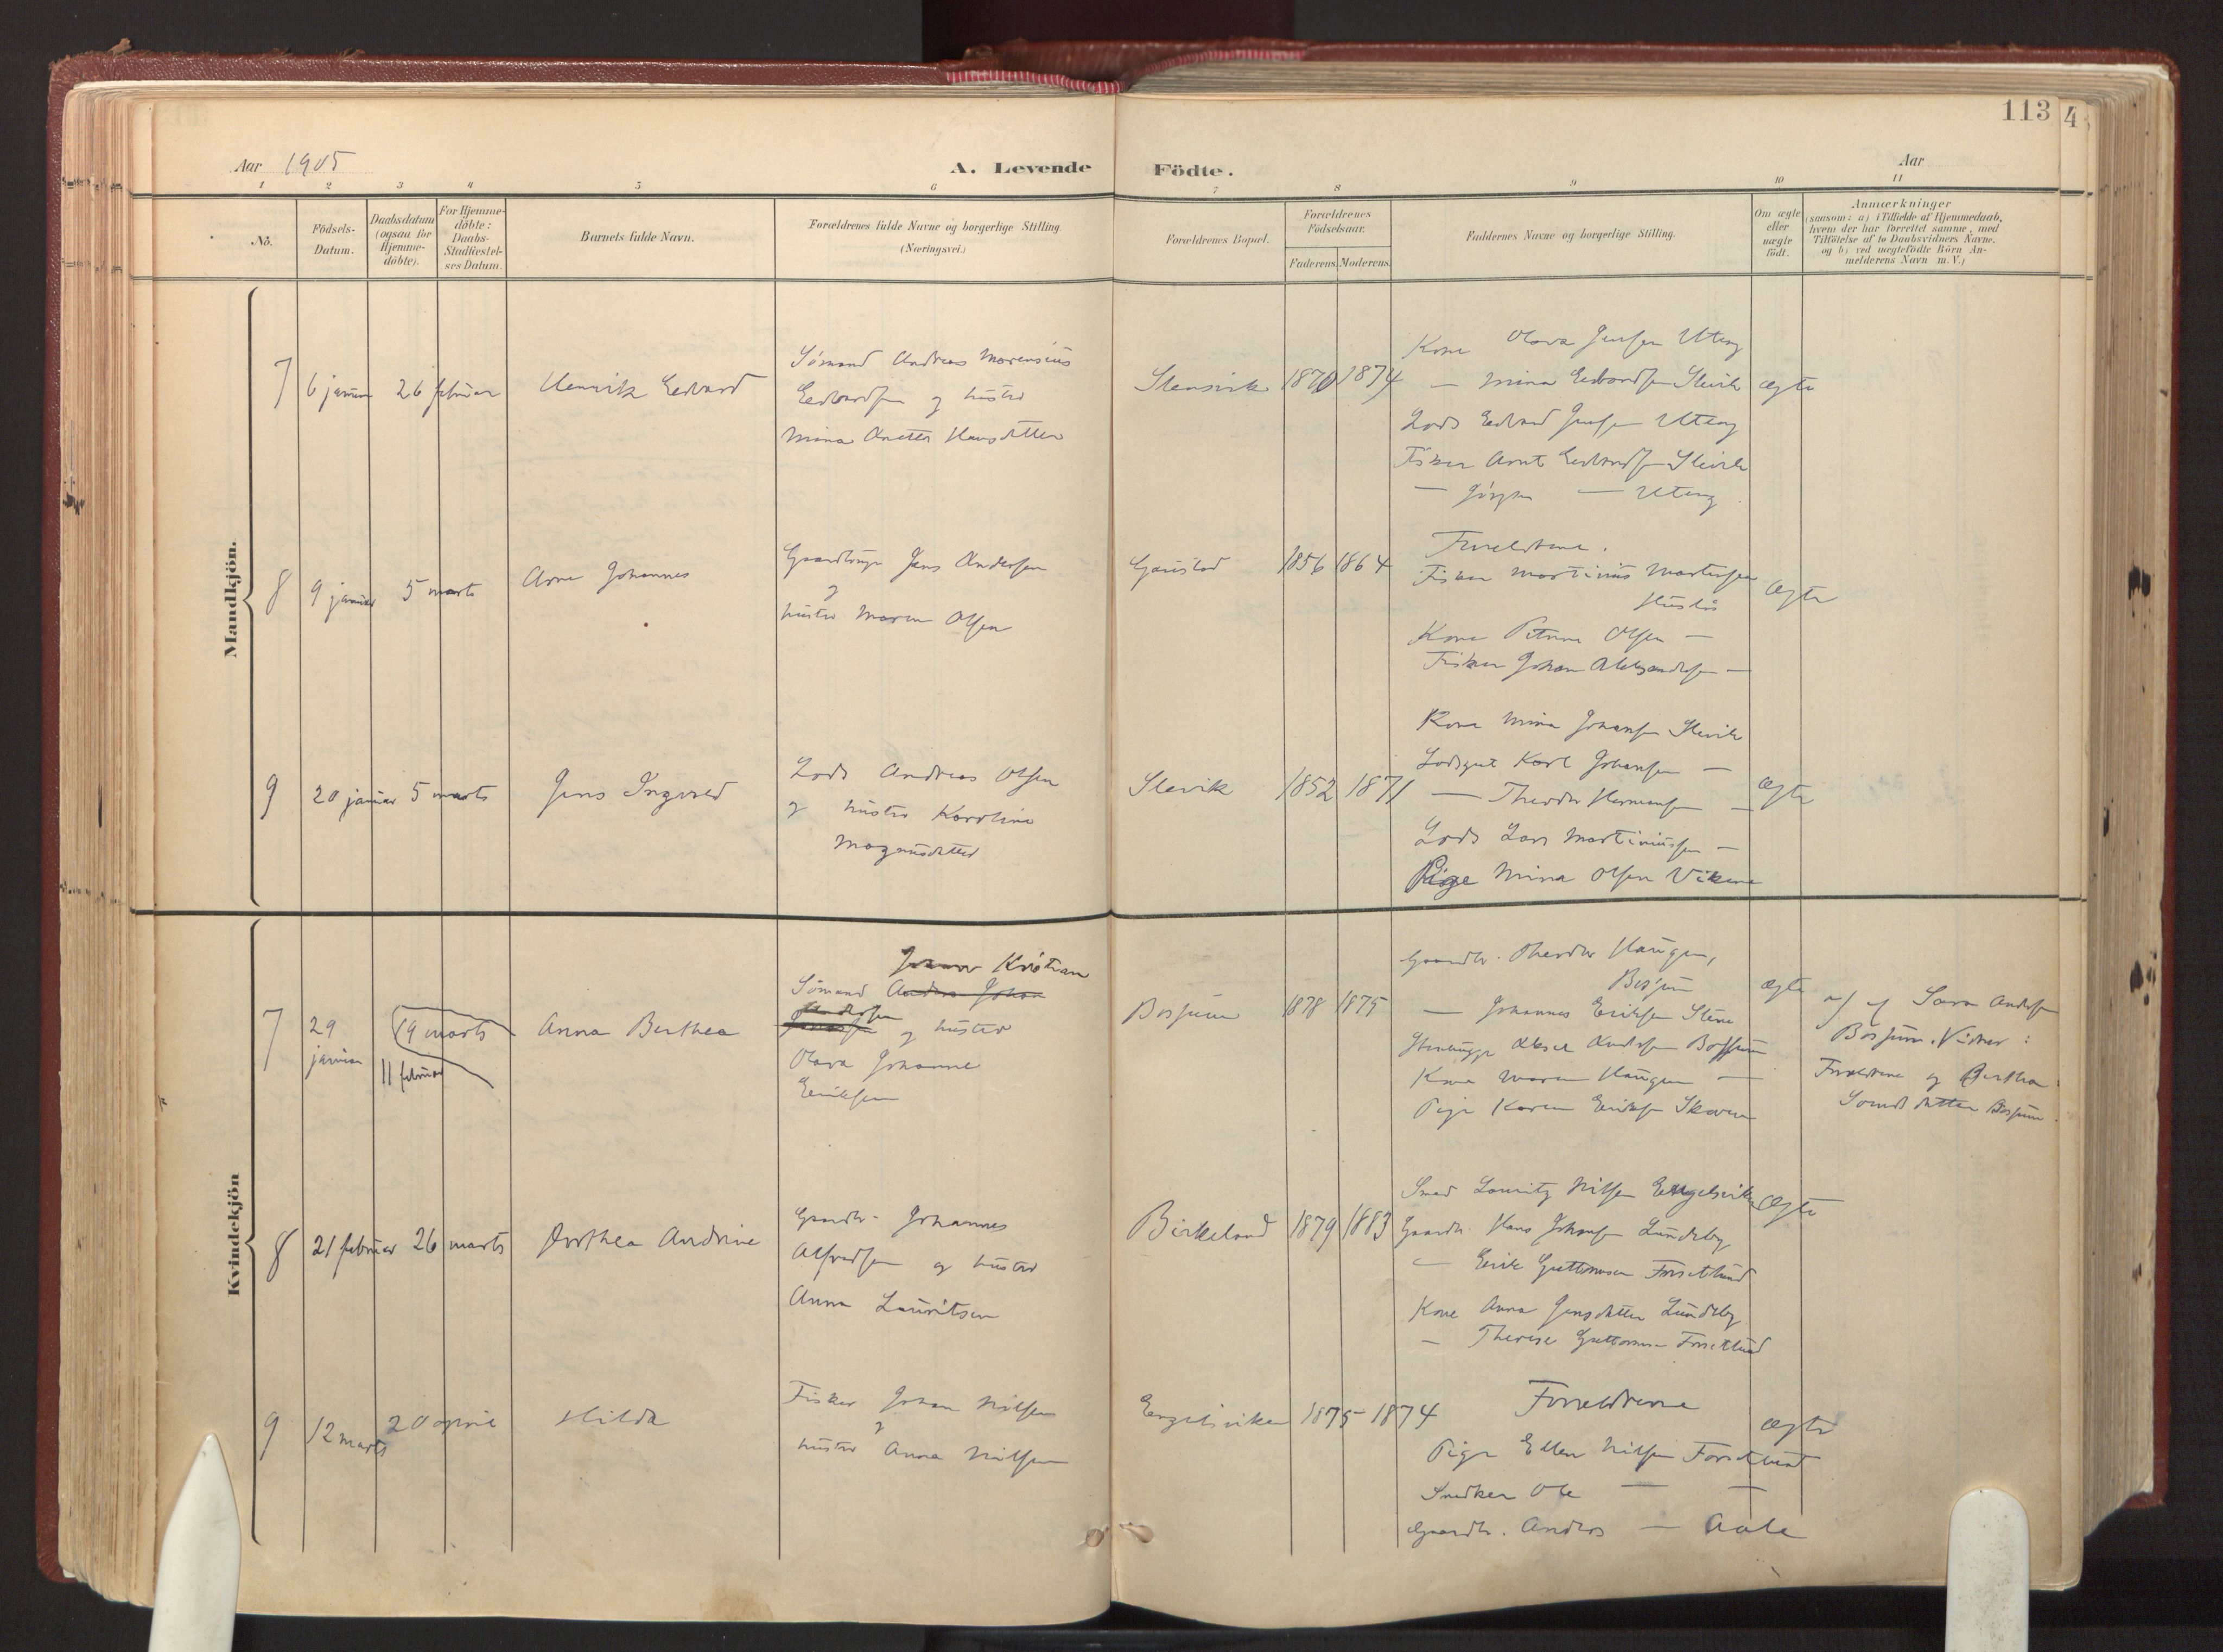 113
4
Aar 1905
A. Levende Födte.
Aar
1 2 3 4 5 6 7 8 9 10 11
No.
Födsels-
Datum.
Daabsdatum
(ogsaa for
Hjemme-
döbte).
For Hjemme-
döbte:
Daabs-
Stadfæstel-
ses Datum.
Barnets fulde Navn.
Forældrenes fulde Navne og borgerlige Stilling
(Næringsvei.)
Forældrenes Bopæl.
Forældrenes
Födselsaar.
Faderens. Moderens.
Faddernes Navne og borgerlige Stilling.
Om ægte
eller
uægte
födt.
Anmærkninger
(saasom: a) i Tilfælde af Hjemmedaab,
hvem der har forrettet samme, med
Tilföielse af to Daabsvidners Navne.
og b) ved uægtefödte Börn An-
melderens Navn m. V.)
Mandkjön.
7
6 januar
26 februar
Henrik Edvard
Sömand Andreas
Edvardsen og hustru
Mina Hansdatter
1870 1874
Kone Olava Jensen
— Mina Edvardsen Slevik
Lods Edvard Jensen
Fisker Arnt Edvardsen Slevik
— Jörgen —
ægte
8
9 januar
5 marts
Arne Johannes
Jens Andersen
og
hustru Maren Olsen
1856 1864
Forældrene.
Fisker Martinius
Kone Olsen —
Fisker Johan Aleksandersen —
ægte
9
20 januar
5 marts
Jens Ingvald
Lods Andreas Olsen
og hustru Karoline
Magnusdatter
Slevik
1852 1871
Kone Mina Johansen Slevik
Lodsgut Karl Johansen —
— Theodor Hermansen —
Lods Lars Martiniussen —
Pige Mina Olsen Vikene
ægte
Kvindekjön
7
29
januar
19 marts
11 februar
Anna Berthea
Kristian
Sömand Anders Johan
Andersen
og hustru
Olava Johanne
Eriksen
1878 1875
Gaardbr. Theodor Haugen,
— Johannes Eriksen
Aksel Andersen
Kone Maren Haugen —
Pige Karen Eriksen
ægte
af
Vidner:
Forældrene og Berthea
8
21 februar
26 marts
Dorthea Andrine
Gaardbr. Johannes
Alfredsen og hustru
Anna Lauritsen
Birkeland
1879 1883
Smed Lauritz Nilsen Engelsviken
Gaardbr. Hans Johansen Lundeby
— Erik Guttormsen
Kone Anna Jensdatter Lundeby
— Therese Guttormsen
ægte
9
12 marts
20 april
Hilda
Fisker Johan Nilsen
og
hustru Anna Nilsen
Engelsviken
1875 - 1874
Forældrene
Pige Ellen Nilsen
Snedker Ole — —
Gaardbr. Andreas — Aale
ægte